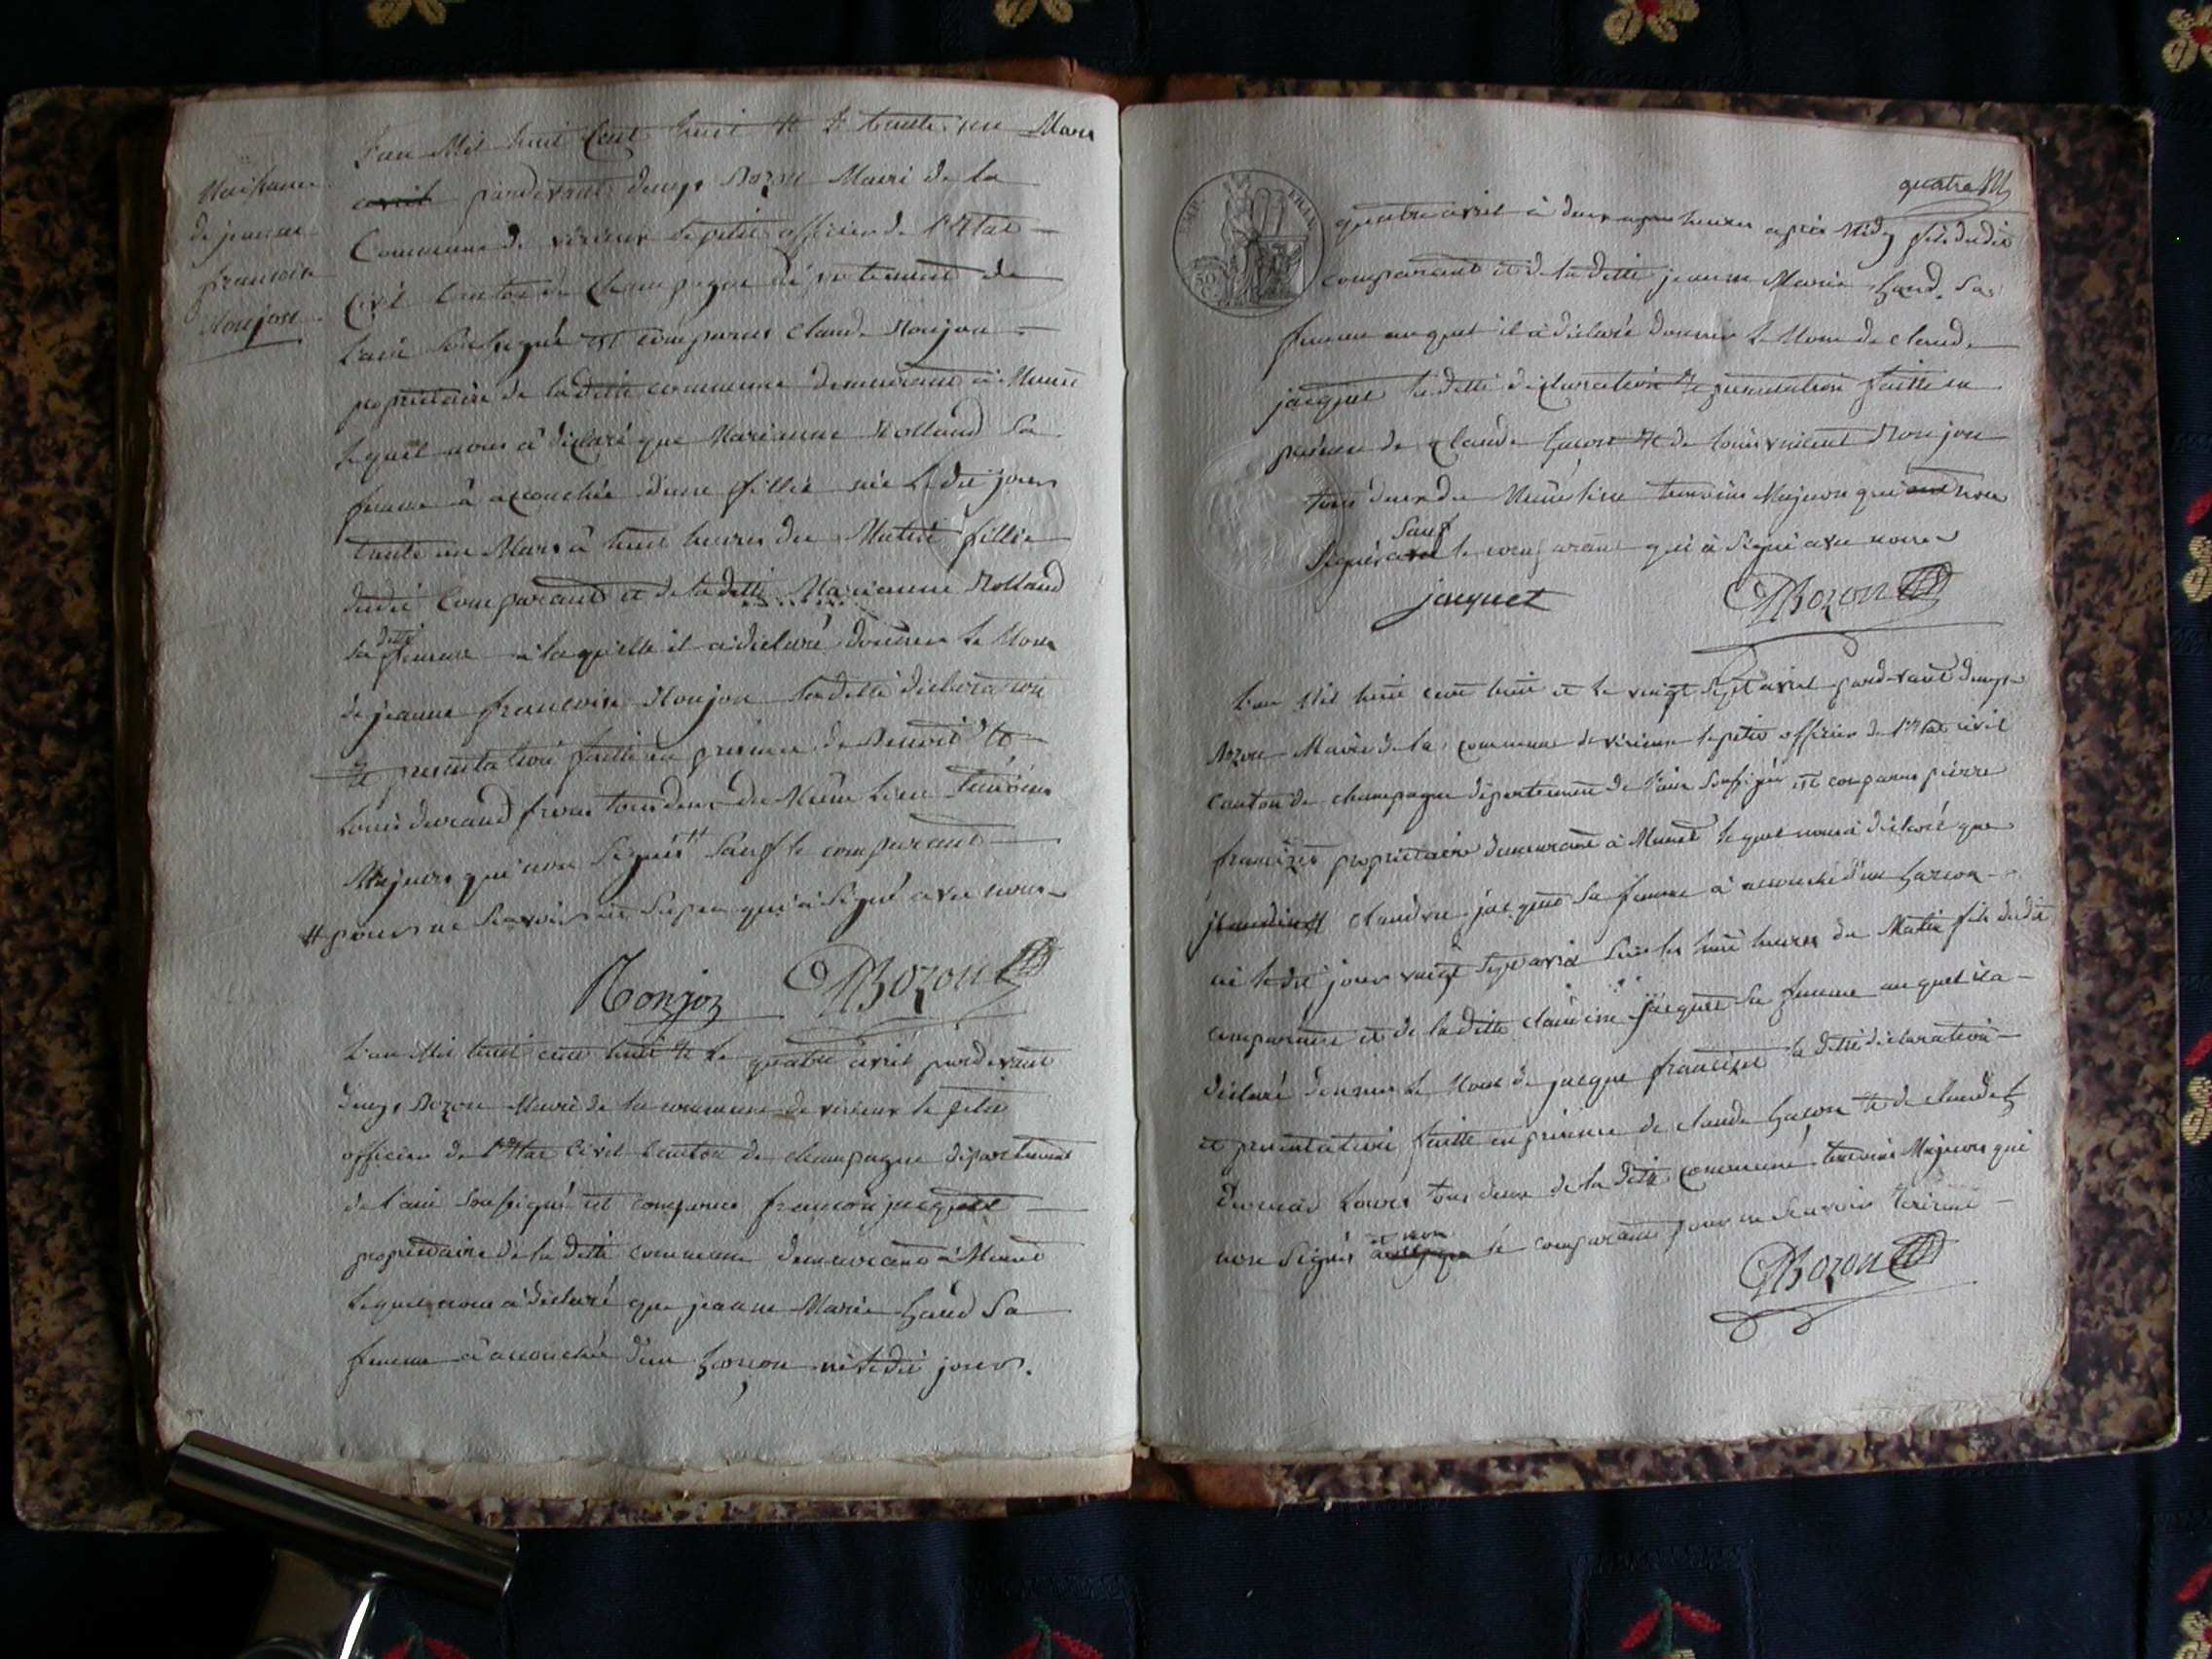 Naissance
de jeanne
francoise
Monjon
L'an Mil huit Cent huit et le trente un Mars
avril pardevant denys Bozon Maire de la
Commune de virieux le petit officier de l'Etat
Civil Canton de Champagne département de
L'ain soussigné est comparus Claude Monjon
propriétaire de laditte commune demeurant à Munet
Lequel nous à déclaré que Marianne Rolland Sa
femme à accouchée d'une fillie née le dit jour
trente un Mars à huit heures du Matin fillie
dudit Comparant et de la ditte Marianne Rolland
sa ditte femme à laquelle il a déclaré donner le Nom
de jeanne francoise Monjon la ditte déclaration
et presentation faitte en presence de Benoit et
Louis durand freres tous deux du Même Lieu temoins
Majeurs qui n'ont Signés # Sauf le comparant
# pour ne Scavoir qui à Signé avec nous
Monjon Bozon
L'an Mil huit cent huit et le quatre avril pardevant
denys Bozon Maire de la commune de virieux le petit
officier de l'Etat Civil Canton de champagne département
de l'ain Soussigné est comparus francois jacquet
propriétaire de la ditte commune demeurant à Munet
Lequel nous à déclaré que jeanne Marie Sa
femme à accouchée d'un Garcon né le dit jour
quatre
quatre avril à deux heures après Midy fils dudit
comparant et de la ditte jeanne Marie Sa
femme auquel il à déclaré donner le Nom de claude
jacquet la ditte déclaration et presentation faitte en
présence de Claude et de Louis vincent Monjon
tous deux du Même lieu temoins Majeurs qui ont non
Signés avec Sauf le comparant qui à Signé avec nous
jacquet Bozon
L'an Mil huit cent huit et le vingt Sept avril pardevant denys
Bozon Maire de la commune de virieux le petit officier de l'Etat civil
Canton de champagne département de l'ain Soussigné est comparus pierre
propriétaire demeurant à Munet lequel nous à déclaré que
Claudine jacquet Sa femme à accouchée d'un Garcon
né le dit jour vingt Sept avril Sur les huit heures du Matin fils dudit
comparant et de la ditte claudine jacquet Sa femme auquel il a
déclaré donner le Nom de jacque la ditte déclaration
et presentation faitte en presence de claude et de claude
Louis tous deux de la ditte commune temoins Majeurs qui
non Signés et non le comparant pour ne Scavoir
Bozon